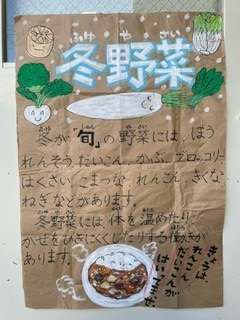 ふゆ や さい
冬野菜
冬が"旬"の野菜には、ほう
れんそう、だいこん、かぶ、ブロッコリー
はくさい、こまつな、れんこん、きくな
ねぎなどがあります。
冬野菜には体を温めたり
かぜをひきにくくしたりする働きが
あります。
きょうは、
れんこん
だいこんが
はいってます